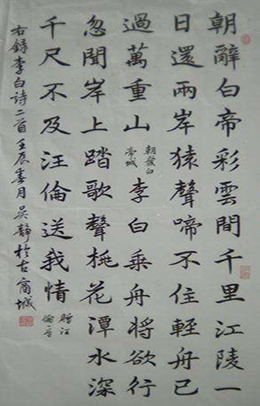 朝辭白帝彩雲間千里江陵一
日還兩岸猿聲啼不住輕舟已
過萬重山 朝發白帝城 李白乘舟將欲行
忽聞岸上踏歌聲桃花潭水深
千尺不及汪倫送我情 贈汪倫
右錄李白詩二首壬辰季月吳靜於古商城